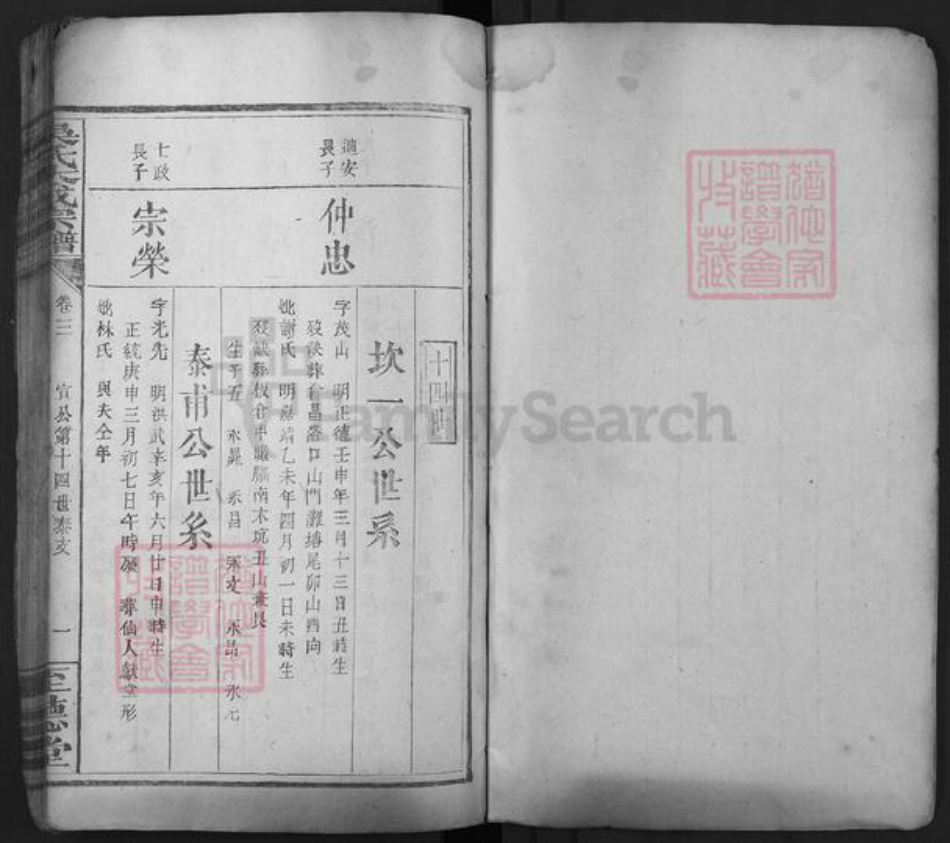 十四世
坎一公世系
適安
長子
仲忠
字茂山 明正德壬申年三月十三日丑時生
歿缺葬會昌洛口山門灘塘尾卯山酉向
妣謝氏 明嘉靖乙未年四月初一日未時生
生子五 永晃 永昌 永文 永昂 永元
泰甫公世系
七政
長子
宗榮
字光先 明洪武辛亥年六月廿日申時生
正統庚申三月初七日午時歿 葬仙人獻掌形
妣林氏 與夫仝年
吳氏大成宗譜
卷三
宣公第十四世泰支
一
至德堂
FamilySearch
猶他家
譜學會
收藏
猶他家
譜學會
收藏